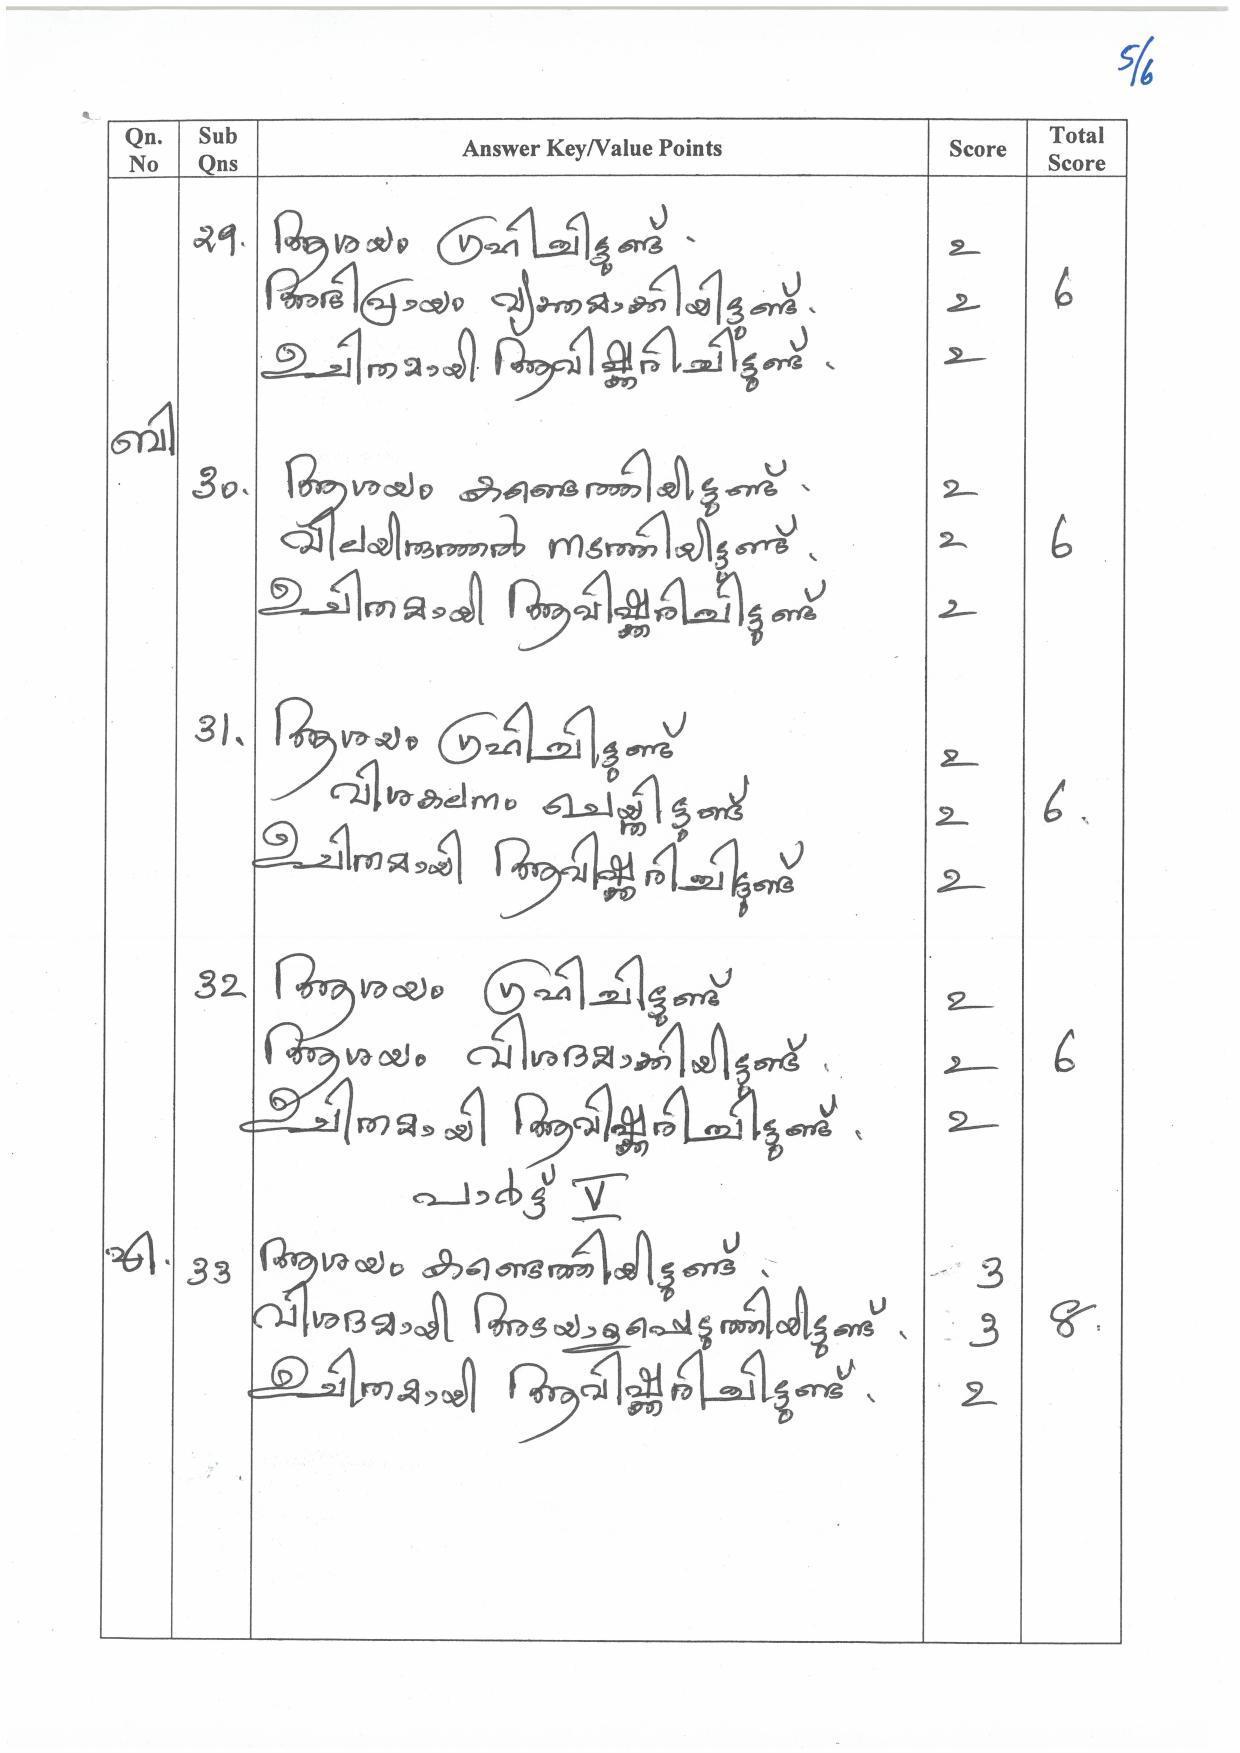 5/6
Qn. No | Sub Qns | Answer Key/Value Points | Score | Total Score
29. ആശയം ഗ്രഹിച്ചിട്ടുണ്ട്. 2
അഭിപ്രായം വ്യക്തമാക്കിയിട്ടുണ്ട്. 2 6
ഉചിതമായി ആവിഷ്കരിച്ചിട്ടുണ്ട്. 2
ബി
30. ആശയം കണ്ടെത്തിയിട്ടുണ്ട്. 2
വിലയിരുത്തൽ നടത്തിയിട്ടുണ്ട്. 2 6
ഉചിതമായി ആവിഷ്കരിച്ചിട്ടുണ്ട് 2
31. ആശയം ഗ്രഹിച്ചിട്ടുണ്ട് 2
വിശകലനം ചെയ്തിട്ടുണ്ട് 2 6.
ഉചിതമായി ആവിഷ്കരിച്ചിട്ടുണ്ട് 2
32 ആശയം ഗ്രഹിച്ചിട്ടുണ്ട് 2
ആശയം വിശദമാക്കിയിട്ടുണ്ട്. 2 6
ഉചിതമായി ആവിഷ്കരിച്ചിട്ടുണ്ട്. 2
പാർട്ട് V
33 ആശയം കണ്ടെത്തിയിട്ടുണ്ട്. 3
വിശദമായി അടയാളപ്പെടുത്തിയിട്ടുണ്ട്. 3 8.
ഉചിതമായി ആവിഷ്കരിച്ചിട്ടുണ്ട്. 2